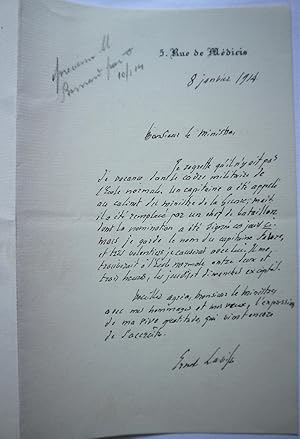 5, Rue de Médicis
8 janvier 1914
10/1/14
Monsieur le Ministre,
Je regrette qu'il n'y ait pas
de vacance dans le cadre militaire de
l'Ecole normale. Un capitaine a été appelé
au cabinet du ministre de la guerre; mais
il a été remplacé par un chef de bataillon
dont la nomination a été
mais je garde le nom du capitaine
et très volontiers je causerai avec lui. Il me
trouverait à l'Ecole normale, entre deux et
trois heures, les jeudi et dimanche exceptés.
Veuillez agréer, Monsieur le ministre
avec mes hommages et mes vœux, l'expression
de ma vive gratitude, qui vient encore
de s'accroître.
Ernest Lavisse